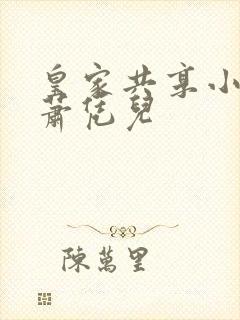 皇家共享小
蕭恁兒
陳萬里